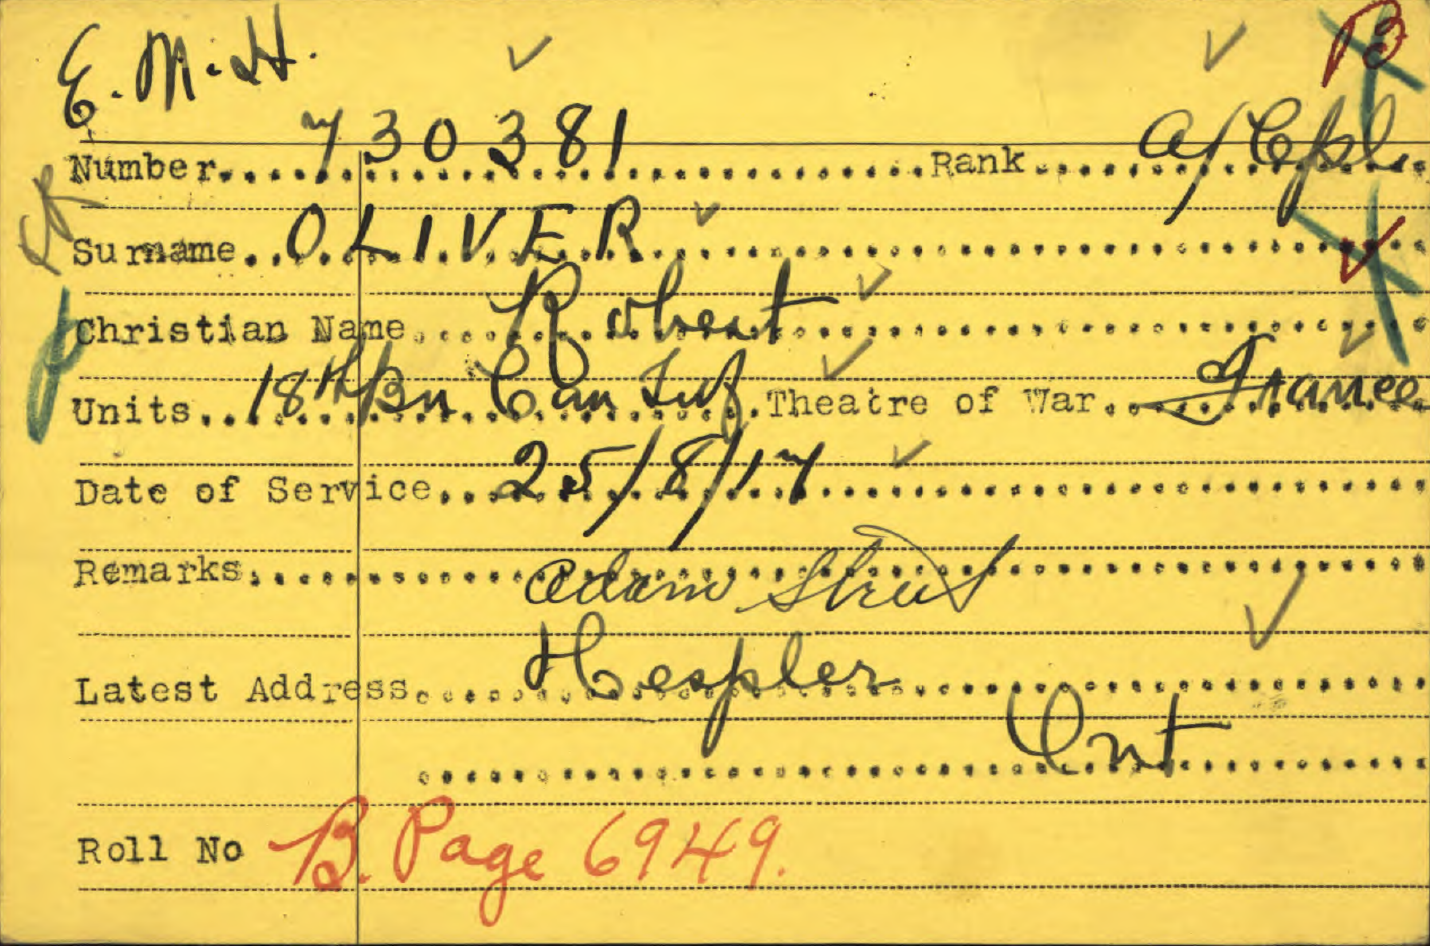 E. M. H. B
Number 730381 Rank A/Cpl.
Surname OLIVER
Christian Name Robert
Units 18th Bn Can Inf. Theatre of War France
Date of Service 25/8/17
Remarks Adam Street
Latest Address Hespler
Ont
Roll No B. Page 6949.